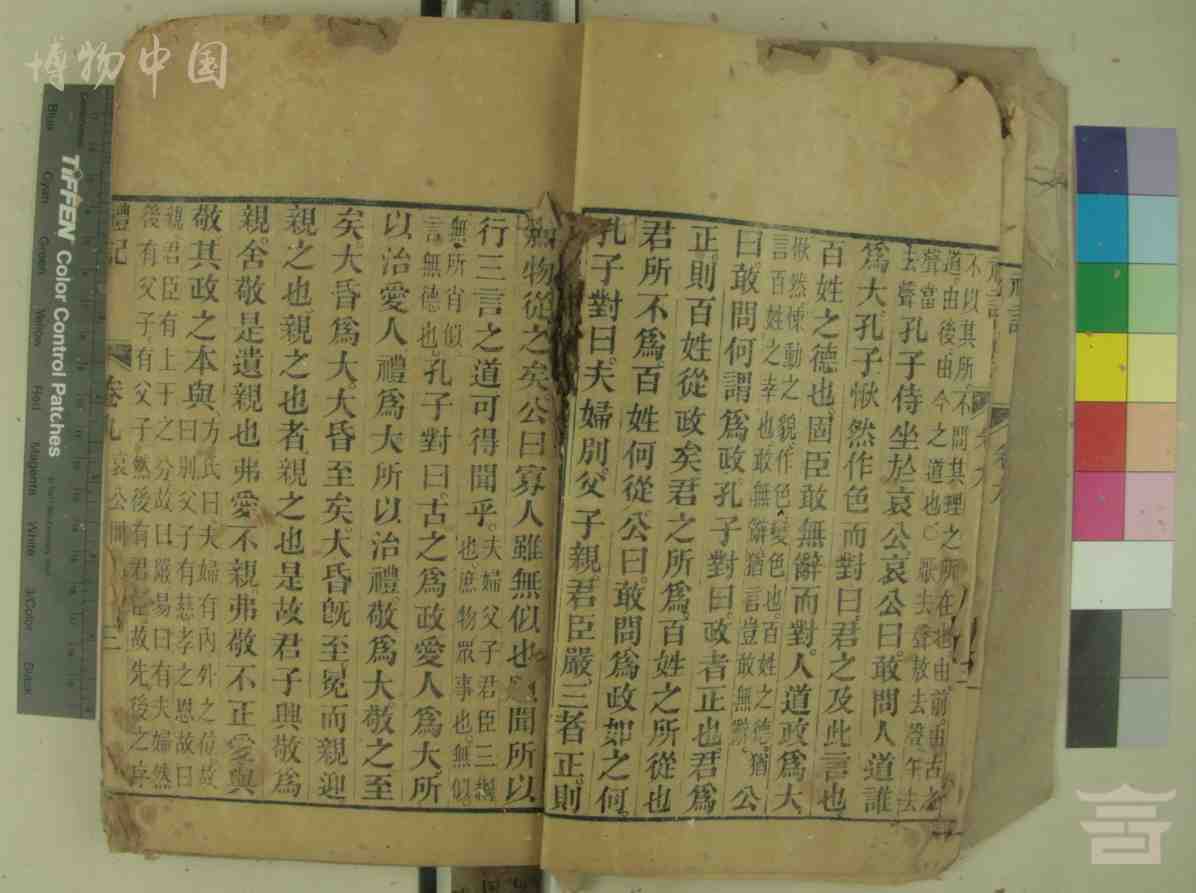 禮記
卷九
不以其所不問其理之所在也由前由古之
道由後由今之道也○厭去聲敖去聲午去
聲當
去聲
孔子侍坐於哀公哀公曰敢問人道誰
爲大孔子愀然作色而對曰君之及此言也
百姓之德也固臣敢無辭而對人道政爲大
愀然悚動之貌作色變色也百姓之德猶
言百姓之幸也敢無辭猶言豈敢無辭
公
曰敢問何謂爲政孔子對曰政者正也君爲
正則百姓從政矣君之所爲百姓之所從也
君所不爲百姓何從公曰敢問爲政如之何
孔子對曰夫婦別父子親君臣嚴三者正則
庶物從之矣公曰寡人雖無似也願聞所以
行三言之道可得聞乎
夫婦父子君臣三綱
也庶物眾事也無似
無所肖似
言無德也
孔子對曰古之爲政愛人爲大所
以治愛人禮爲大所以治禮敬爲大敬之至
矣大昏爲大大昏至矣大昏既至冕而親迎
親之也親之也者親之也是故君子興敬爲
親舍敬是遺親也弗愛不親弗敬不正愛與
敬其政之本與
方氏曰夫婦有內外之位故
曰別父子有慈孝之恩故曰
親君臣有上下之分故曰嚴易曰有夫婦然
後有父子有父子然後有君臣故先後之序
禮記 卷九哀公問 三
博物中国
TIFFEN Color Control Patches
Blue
Cyan
Green
Yellow
Red
Magenta
White
3/Color
Black